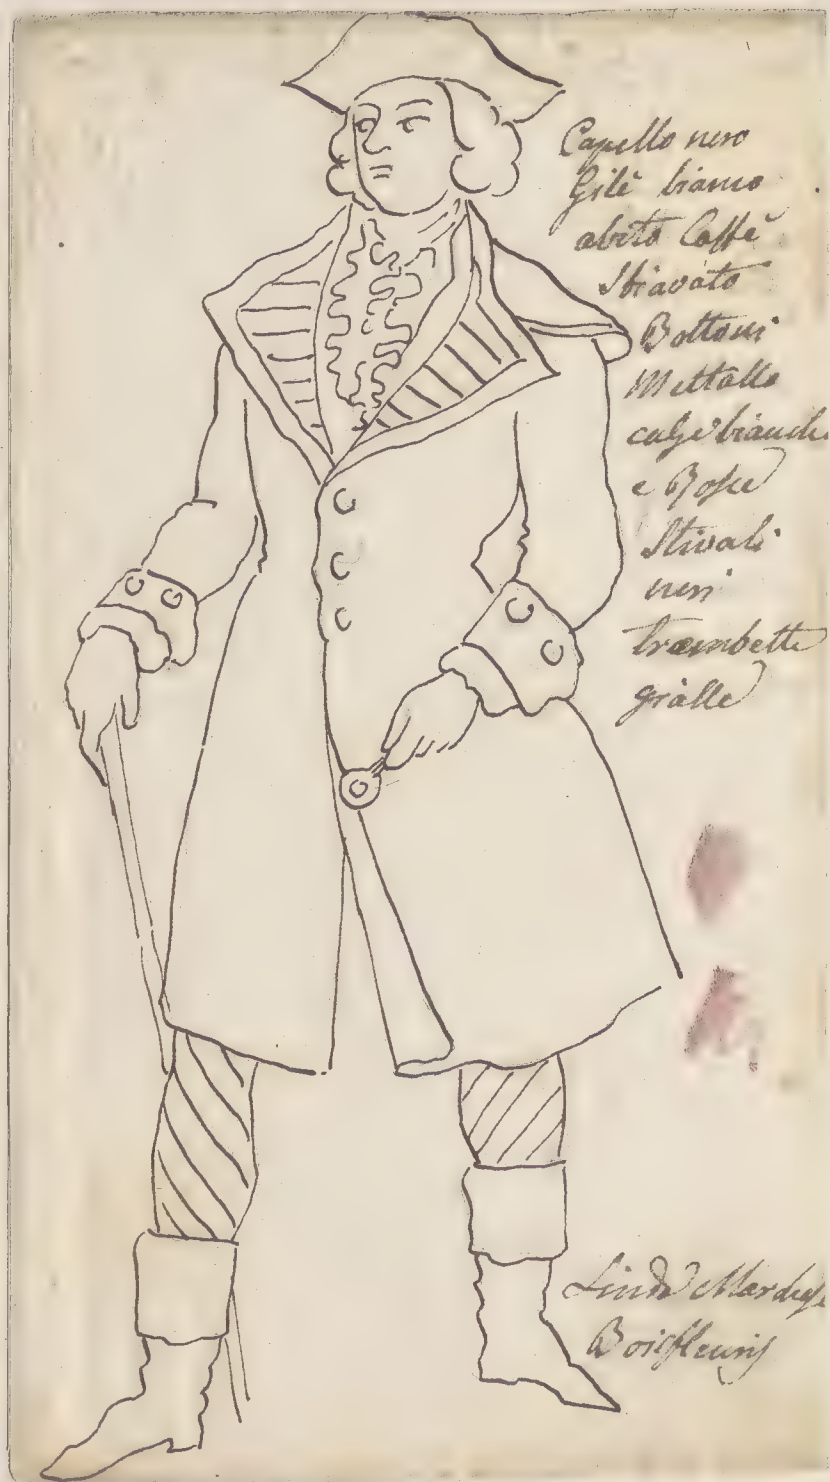 Capello nero
Gilè bianco
abito Caffè
Sbiavato
Bottoni
Mettallo
calze bianche
e Rosse
Stivali
neri
trombette
gialle
Linda Marchese
Boisfleury